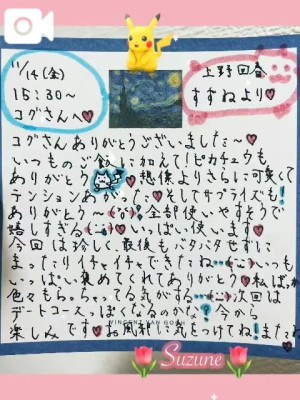 11/14(金)
15:30~
コグさんへ♡
上野回春
すずねより♡
コグさんありがとうございました~♡
いつものご飲に加えて!ピカチュウも
ありがとう♡想像よりさらに可愛くて
テンションあがった♡そしてサプライズも!
ありがとう~全部使いやすそうで
嬉しすぎる いっぱい使います♡
今回は珍しく、最後もバタバタせずに
まったりイチャイチャできたね… いつも
いっぱい褒めてくれてありがとう♡私ばっか
色々もらっちゃってる気がする… 次回は
デートコースっぽくなるのかな?今から
楽しみです♡お風邪に気をつけてね!またね
VINCENT VAN GOGH
Suzune